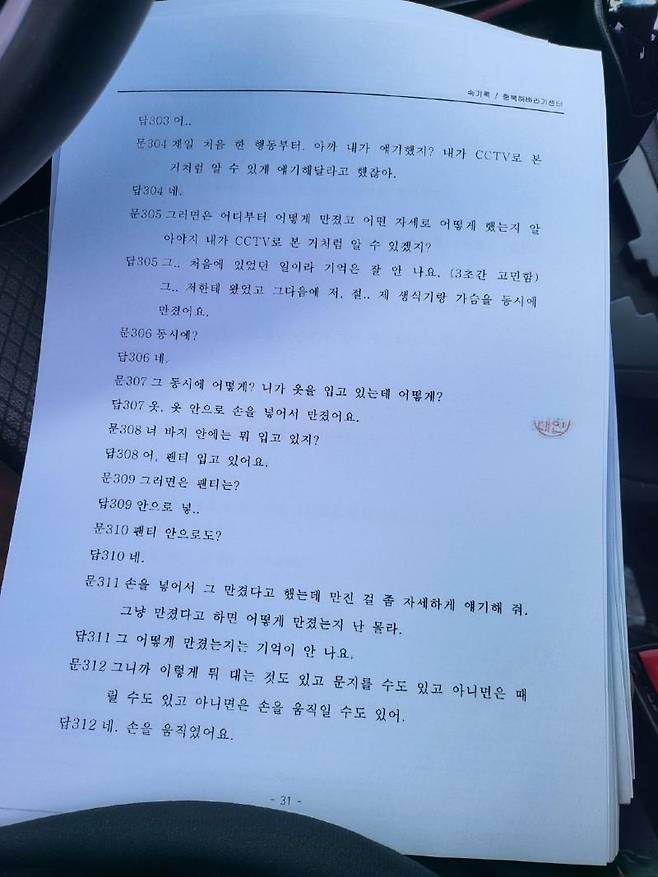 속기록 / 충북해바라기센터
답303 어..
문304 제일 처음 한 행동부터. 아까 내가 얘기했지? 내가 CCTV로 본
거처럼 알 수 있게 얘기해달라고 했잖아.
답304 네.
문305 그러면은 어디부터 어떻게 만졌고 어떤 자세로 어떻게 했는지 알
아야지 내가 CCTV로 본 거처럼 알 수 있겠지?
답305 그.. 처음에 있었던 일이라 기억은 잘 안 나요. (3초간 고민함)
그.. 저한테 왔었고 그다음에 저, 절.. 제 생식기랑 가슴을 동시에
만졌어요.
문306 동시에?
답306 네.
문307 그 동시에 어떻게? 니가 옷을 입고 있는데 어떻게?
답307 옷, 옷 안으로 손을 넣어서 만졌어요.
문308 너 바지 안에는 뭐 입고 있지?
답308 어, 팬티 입고 있어요.
문309 그러면은 팬티는?
답309 안으로 넣..
문310 팬티 안으로도?
답310 네.
문311 손을 넣어서 그 만졌다고 했는데 만진 걸 좀 자세하게 얘기해 줘.
그냥 만졌다고 하면 어떻게 만졌는지 난 몰라.
답311 그 어떻게 만졌는지는 기억이 안 나요.
문312 그니까 이렇게 뭐 대는 것도 있고 문지를 수도 있고 아니면은 때
릴 수도 있고 아니면은 손을 움직일 수도 있어.
답312 네. 손을 움직였어요.
- 31 -